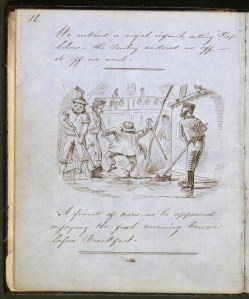 12.
We noticed a royal infant eating Pap
below – the Sentry ordered us off, –
so off we went.
A friend of ours, as he appeared
enjoying the fresh morning breeze
before Breakfast.